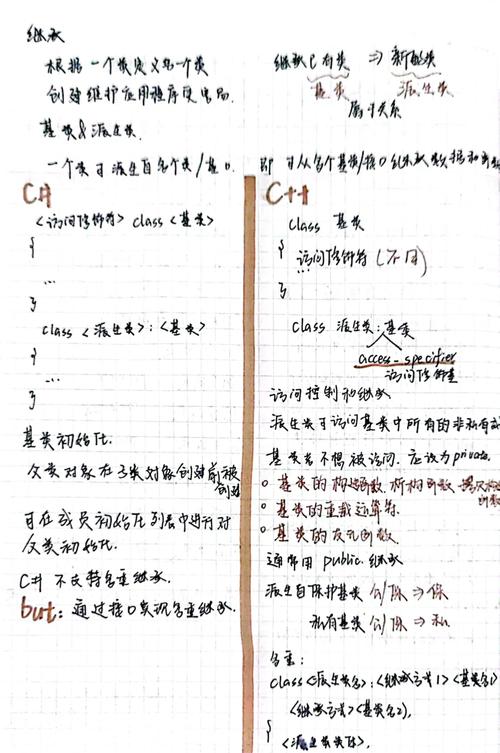 继承
根据一个类定义另一个类
创建维护应用程序更容易.
基类&派生类.
一个类可派生自多个类/接口.
继承已有类 => 新的类
基类 派生类
属于关系
即 可从多个基类/接口继承数据和函数
C#
<访问修饰符> class <基类>
{
...
}
class <派生类>:<基类>
{
...
}
基类初始化.
父类对象在子类对象创建前被创建
可在成员初始化列表中进行对
父类初始化.
C# 不支持多重继承.
but: 通过接口实现多重继承.
C++
class 基类
{
访问修饰符 (不同)
}
class 派生类:基类
access-specifier
访问修饰符
访问控制和继承
派生类可访问基类中所有的非私有成
基类若不想被访问. 应设为private.
基类的构造函数. 析构函数
基类的重载运算符.
基类的友元函数.
通常用 public. 继承
派生自保护基类 公/保 => 保
私有基类 公/保 => 私
多重:
class<派生类名>:<继承方式1><基类名1>
<继承方式><基类名2>,
{
<派生类类体>.